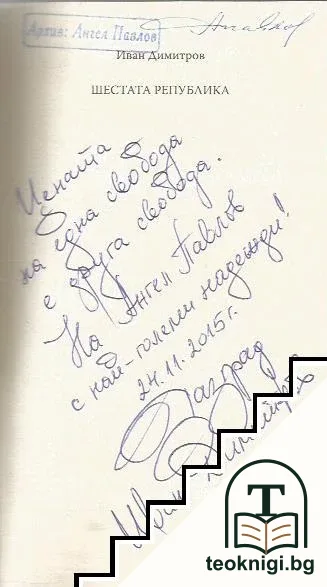 Апавлов
Архив: Ангел Павлов
Иван Димитров
ШЕСТАТА РЕПУБЛИКА
Цената
на една свобода
е друга свобода.
На Ангел Павлов
с най-големи надежди!
24.11.2015г.
Разград
T
teoknigi.bg